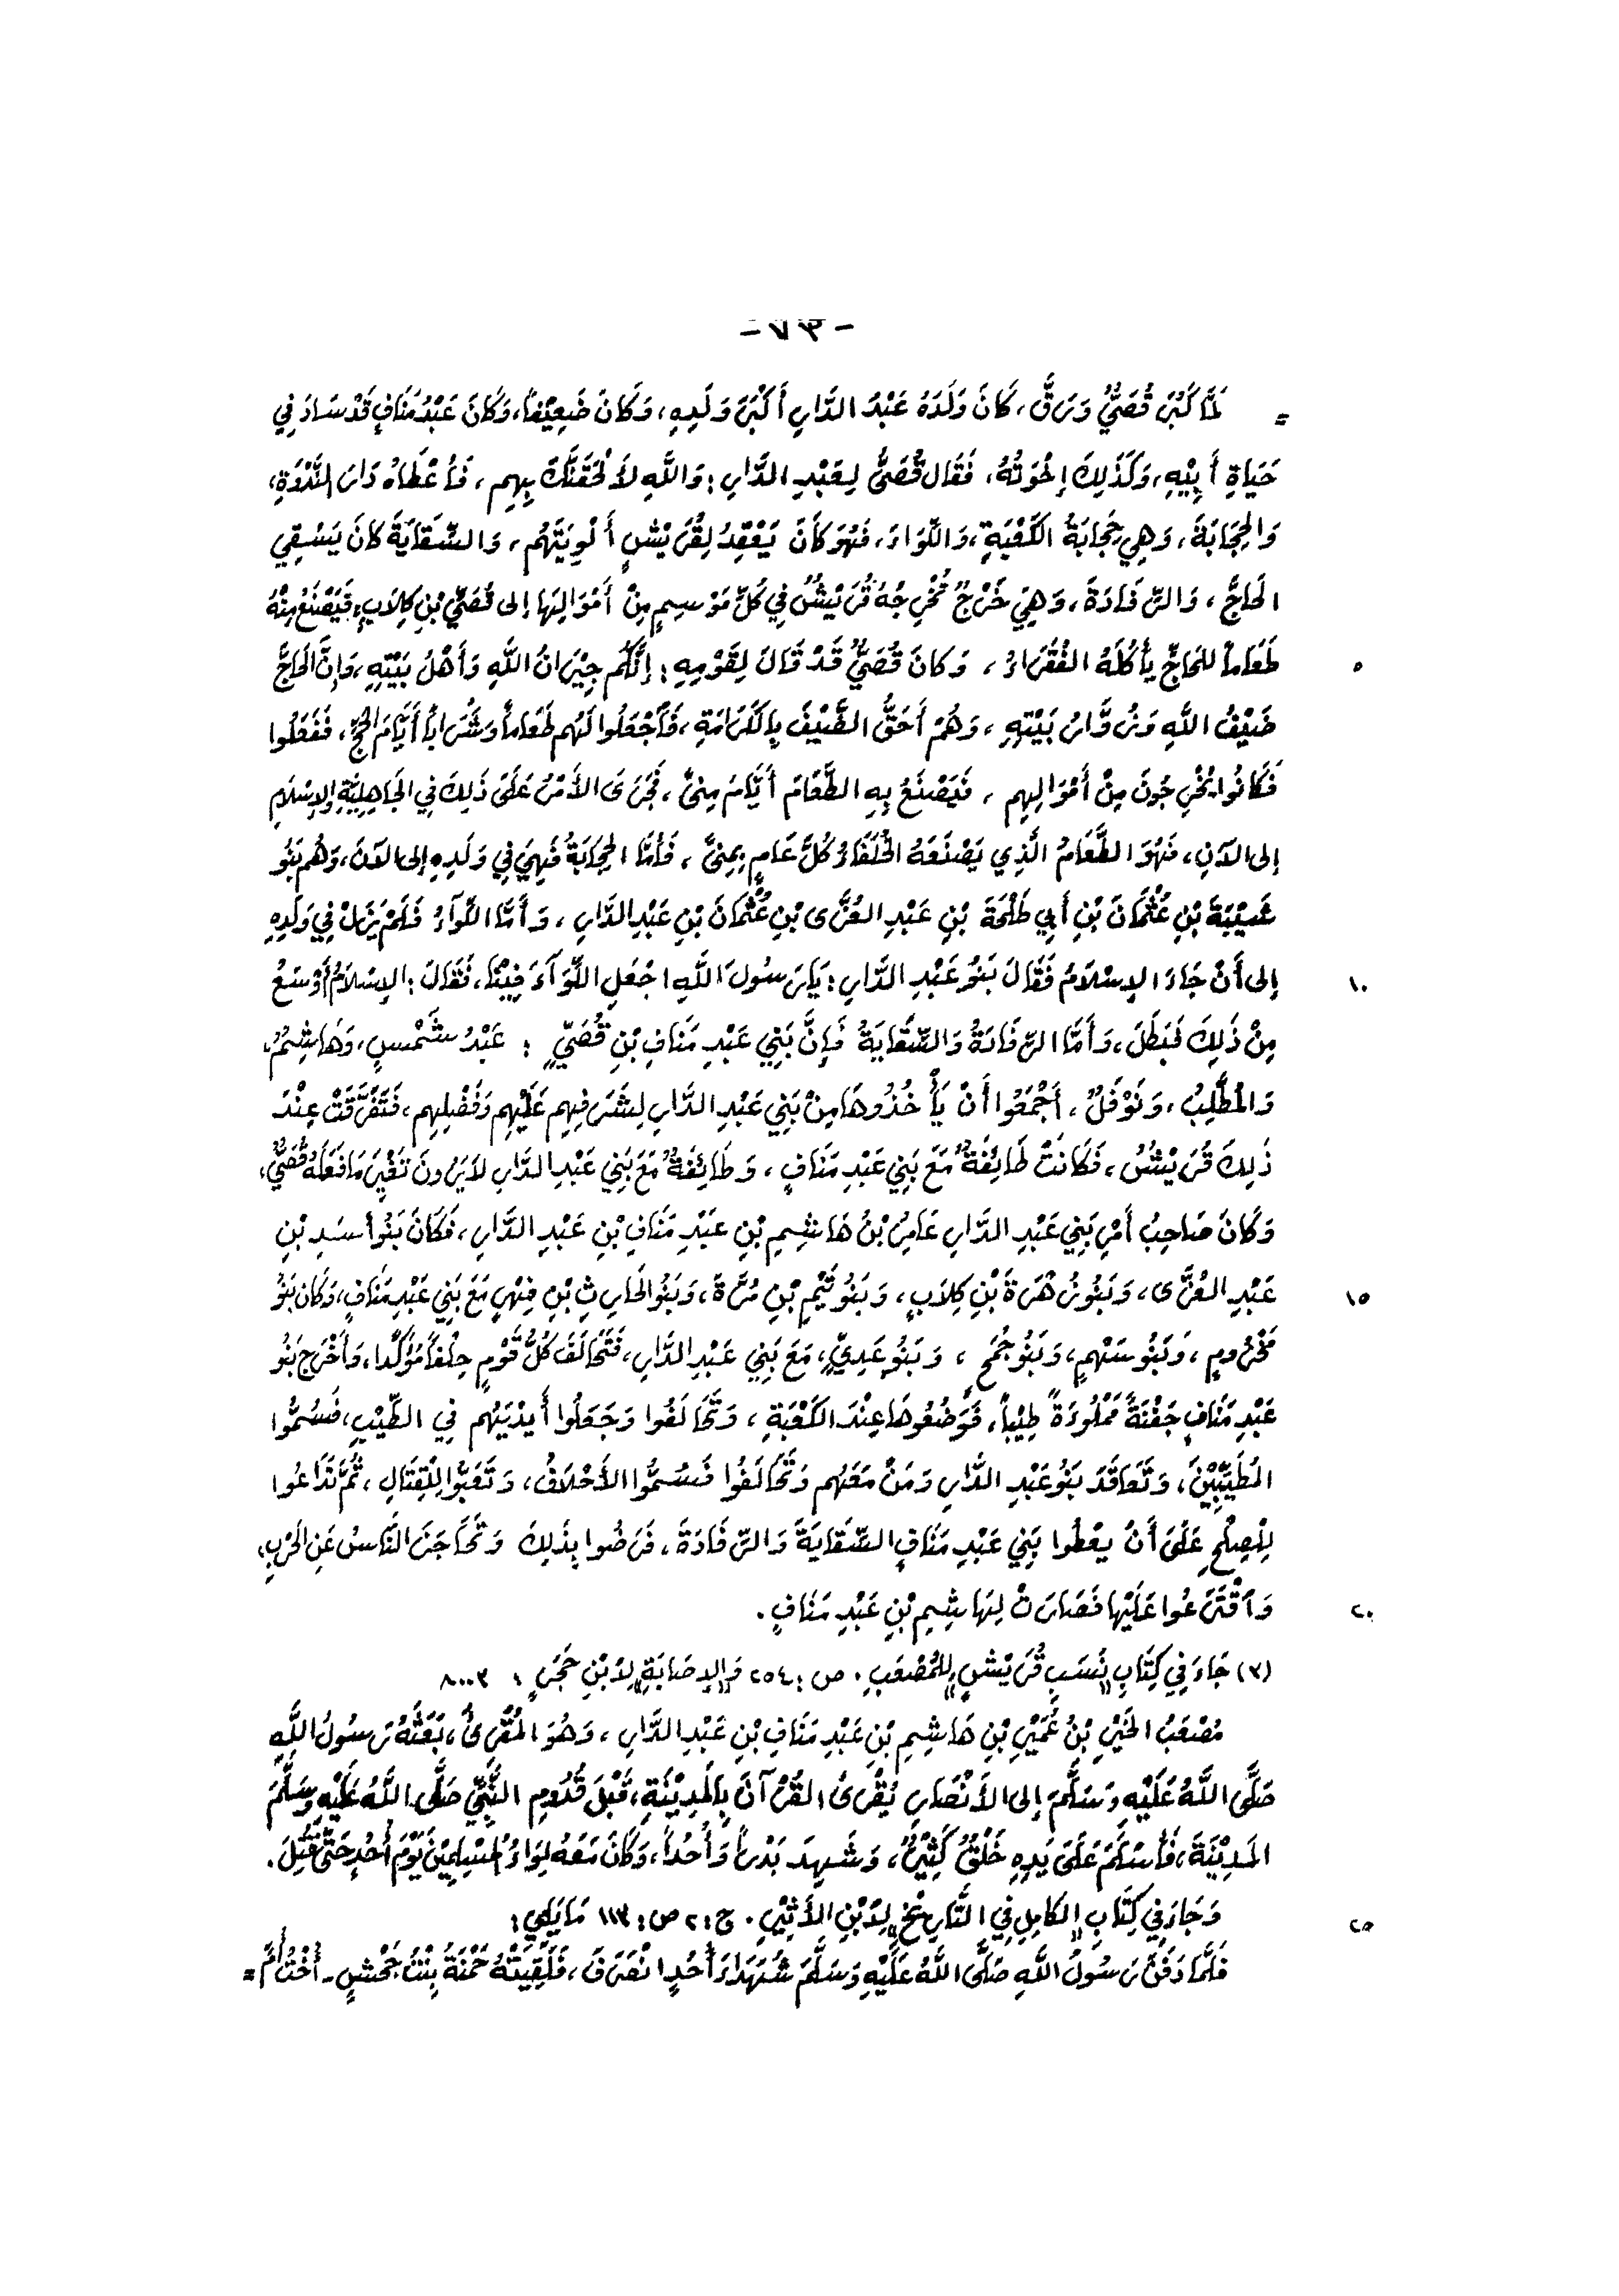 -٧٣-
= لَمَّا كَبُرَ قُصَيٌّ وَرَقَّ، كَانَ وَلَدُهُ عَبْدُ الدَّارِ أَكْبَرَ وَلَدِهِ، وَكَانَ ضَعِيْفاً، وَكَانَ عَبْدُ مَنَافٍ قَدْ سَادَ فِي
حَيَاةِ أَبِيْهِ، وَكَذَلِكَ إِخْوَتُهُ، فَقَالَ قُصَيٌّ لِعَبْدِ الدَّارِ: وَاللَّهِ لَأُلْحِقَنَّكَ بِهِم، فَأَعْطَاهُ دَارَ النَّدْوَةِ،
وَالحِجَابَةَ، وَهِيَ حِجَابَةُ الكَعْبَةِ، وَاللِّوَاءَ، فَهُوَ كَانَ يَعْقِدُ لِقُرَيْشٍ أَلْوِيَتَهُم، وَالسِّقَايَةَ كَانَ يَسْقِي
الحَاجَّ، وَالرِّفَادَةَ، وَهِيَ خَرْجٌ تُخْرِجُهُ قُرَيْشٌ فِي كُلِّ مَوْسِمٍ مِنْ أَمْوَالِهَا إلى قُصَيِّ بْنِ كِلاَبٍ، فَيَصْنَعُ مِنْهُ
٥ طَعَاماً لِلحَاجِّ يَأكُلُهُ الفُقَرَاءُ، وَكَانَ قُصَيٌّ قَدْ قَالَ لِقَوْمِهِ: إِنَّكُم جِيْرَانُ اللَّهِ وَأَهْلُ بَيْتِهِ، وَإِنَّ الحَاجَّ
ضَيْفُ اللَّهِ وَزُوَّارُ بَيْتِهِ، وَهُمْ أَحَقُّ الضَّيْفِ بِالكَرَامَةِ، فَاجْعَلُوا لَهُم طَعَاماً وَشَرَاباً أَيَّامَ الحَجِّ، فَفَعَلُوا
فَكَانُوا يُخْرِجُونَ مِنْ أَمْوَالِهِم، فَيَصْنَعُ بِهِ الطَّعَامَ أَيَّامَ مِنىً، فَجَرَى الأَمْرُ عَلَى ذَلِكَ فِي الجَاهِلِيَّةِ وَالإِسْلاَمِ
إلى الآنِ، فَهُوَ الطَّعَامُ الَّذِي يَصْنَعُهُ الخُلَفَاءُ كُلَّ عَامٍ بِمِنىً، فَأَمَّا الحِجَابَةُ فَهِيَ فِي وَلَدِهِ إلى الآنَ، وَهُم بَنُو
شَيْبَةَ بْنِ عُثْمَانَ بْنِ أَبِي طَلْحَةَ بْنِ عَبْدِ العُزَّى بْنِ عُثْمَانَ بْنِ عَبْدِ الدَّارِ، وَأَمَّا اللِّوَاءُ فَلَمْ يَزَلْ فِي وَلَدِهِ
١٠ إلى أَنْ جَاءَ الإِسْلاَمُ فَقَالَ بَنُو عَبْدِ الدَّارِ: يَا رَسُولَ اللَّهِ اجْعَلِ اللِّوَاءَ فِيْنَا، فَقَالَ: الإِسْلاَمُ أَوْسَعُ
مِنْ ذَلِكَ فَبَطَلَ، وَأَمَّا الرِّفَادَةُ وَالسِّقَايَةُ فَإِنَّ بَنِي عَبْدِ مَنَافِ بْنِ قُصَيٍّ: عَبْدُ شَمْسٍ، وَهَاشِمٌ،
وَالمُطَّلِبُ، وَنَوْفَلٌ، أَجْمَعُوا أَنْ يَأْخُذُوهَا مِنْ بَنِي عَبْدِ الدَّارِ لِشَرَفِهِم عَلَيْهِم وَفَضْلِهِم، فَتَفَرَّقَتْ عِنْدَ
ذَلِكَ قُرَيْشٌ، فَكَانَتْ طَائِفَةٌ مَعَ بَنِي عَبْدِ مَنَافٍ، وَطَائِفَةٌ مَعَ بَنِي عَبْدِ الدَّارِ لاَ يَرَونَ تَغْيِيْرَ مَا فَعَلَهُ قُصَيٌّ،
وَكَانَ صَاحِبُ أَمْرِ بَنِي عَبْدِ الدَّارِ عَامِرُ بْنُ هَاشِمِ بْنِ عَبْدِ مَنَافِ بْنِ عَبْدِ الدَّارِ، فَكَانَ بَنُو أَسَدِ بْنِ
١٥ عَبْدِ العُزَّى، وَبَنُو زُهْرَةَ بْنِ كِلاَبٍ، وَبَنُو تَيْمِ بْنِ مُرَّةَ، وَبَنُو الحَارِثِ بْنِ فِهْرٍ مَعَ بَنِي عَبْدِ مَنَافٍ، وَكَانَ بَنُو
مَخْزُومٍ، وَبَنُو سَهْمٍ، وَبَنُو جُمَحٍ، وَبَنُو عَدِيٍّ، مَعَ بَنِي عَبْدِ الدَّارِ، فَتَحَالَفَ كُلُّ قَوْمٍ حِلْفاً مُؤَكَّداً، وَأَخْرَجَ بَنُو
عَبْدِ مَنَافٍ جَفْنَةً مَمْلُوءَةً طِيْباً، فَوَضَعُوهَا عِنْدَ الكَعْبَةِ، وَتَحَالَفُوا وَجَعَلُوا أَيْدِيَهُم فِي الطِّيْبِ، فَسُمُّوا
المُطَيَّبِيْنَ، وَتَعَاقَدَ بَنُو عَبْدِ الدَّارِ وَمَنْ مَعَهُم وَتَحَالَفُوا فَسُمُّوا الأَحْلاَفُ، وَتَعَبُّوا لِلْقِتَالِ، ثُمَّ تَدَاعُوا
لِلْصِلْحِ عَلَى أَنْ يُعْطُوا بَنِي عَبْدِ مَنَافٍ السِّقَايَةَ وَالرِّفَادَةَ، فَرَضُوا بِذَلِكَ وَتَحَاجَزَ النَّاسُ عَنِ الحَرْبِ،
٢٠ وَاقْتَرَعُوا عَلَيْهَا فَصَارَتْ لِهَاشِمِ بْنِ عَبْدِ مَنَافٍ.
(٣) جَاءَ فِي كِتَابِ "نَسَبِ قُرَيْشٍ" لِلمُصْعَبِ. ص: ٢٥٤ وَ"الإِصَابَةِ" لِابْنِ حَجَرٍ: ٨٠٠٣
مُصْعَبُ الخَيْرِ بْنُ عُمَيْرِ بْنِ هَاشِمِ بْنِ عَبْدِ مَنَافِ بْنِ عَبْدِ الدَّارِ، وَهُوَ المُقْرِئُ، بَعَثَهُ رَسُولُ اللَّهِ
صَلَّى اللَّهُ عَلَيْهِ وَسَلَّمَ إلى الأَنْصَارِ يُقْرِئُ القُرْآنَ بِالمَدِيْنَةِ، قَبْلَ قُدُومِ النَّبِيِّ صَلَّى اللَّهُ عَلَيْهِ وَسَلَّمَ
المَدِيْنَةَ، فَأَسْلَمَ عَلَى يَدِهِ خَلْقٌ كَثِيْرٌ، وَشَهِدَ بَدْراً وَأُحُداً، وَكَانَ مَعَهُ لِوَاءُ المُسْلِمِيْنَ يَوْمَ أُحُدٍ حَتَّى قُتِلَ.
٢٥ وَجَاءَ فِي كِتَابِ "الكَامِلِ فِي التَّارِيْخِ" لِابْنِ الأَثِيْرِ. ج: ٢ ص: ١١٣ مَا يَلِي:
فَلَمَّا دَفَنَ رَسُولُ اللَّهِ صَلَّى اللَّهُ عَلَيْهِ وَسَلَّمَ شُهَدَاءَ أُحُدٍ انْصَرَفَ، فَلَقِيَتْهُ حَمْنَةُ بِنْتُ جَحْشٍ - أُخْتُ أُمِّ =